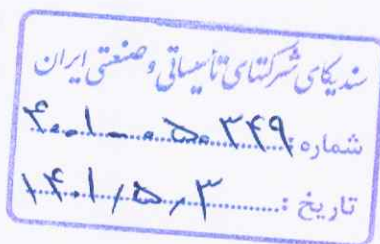 سندیکای شرکتهای تأسیساتی و صنعتی ایران
شماره: ۴۰۱-۰۵۰۳۴۹
تاریخ: ۱۴۰۱/۵/۳